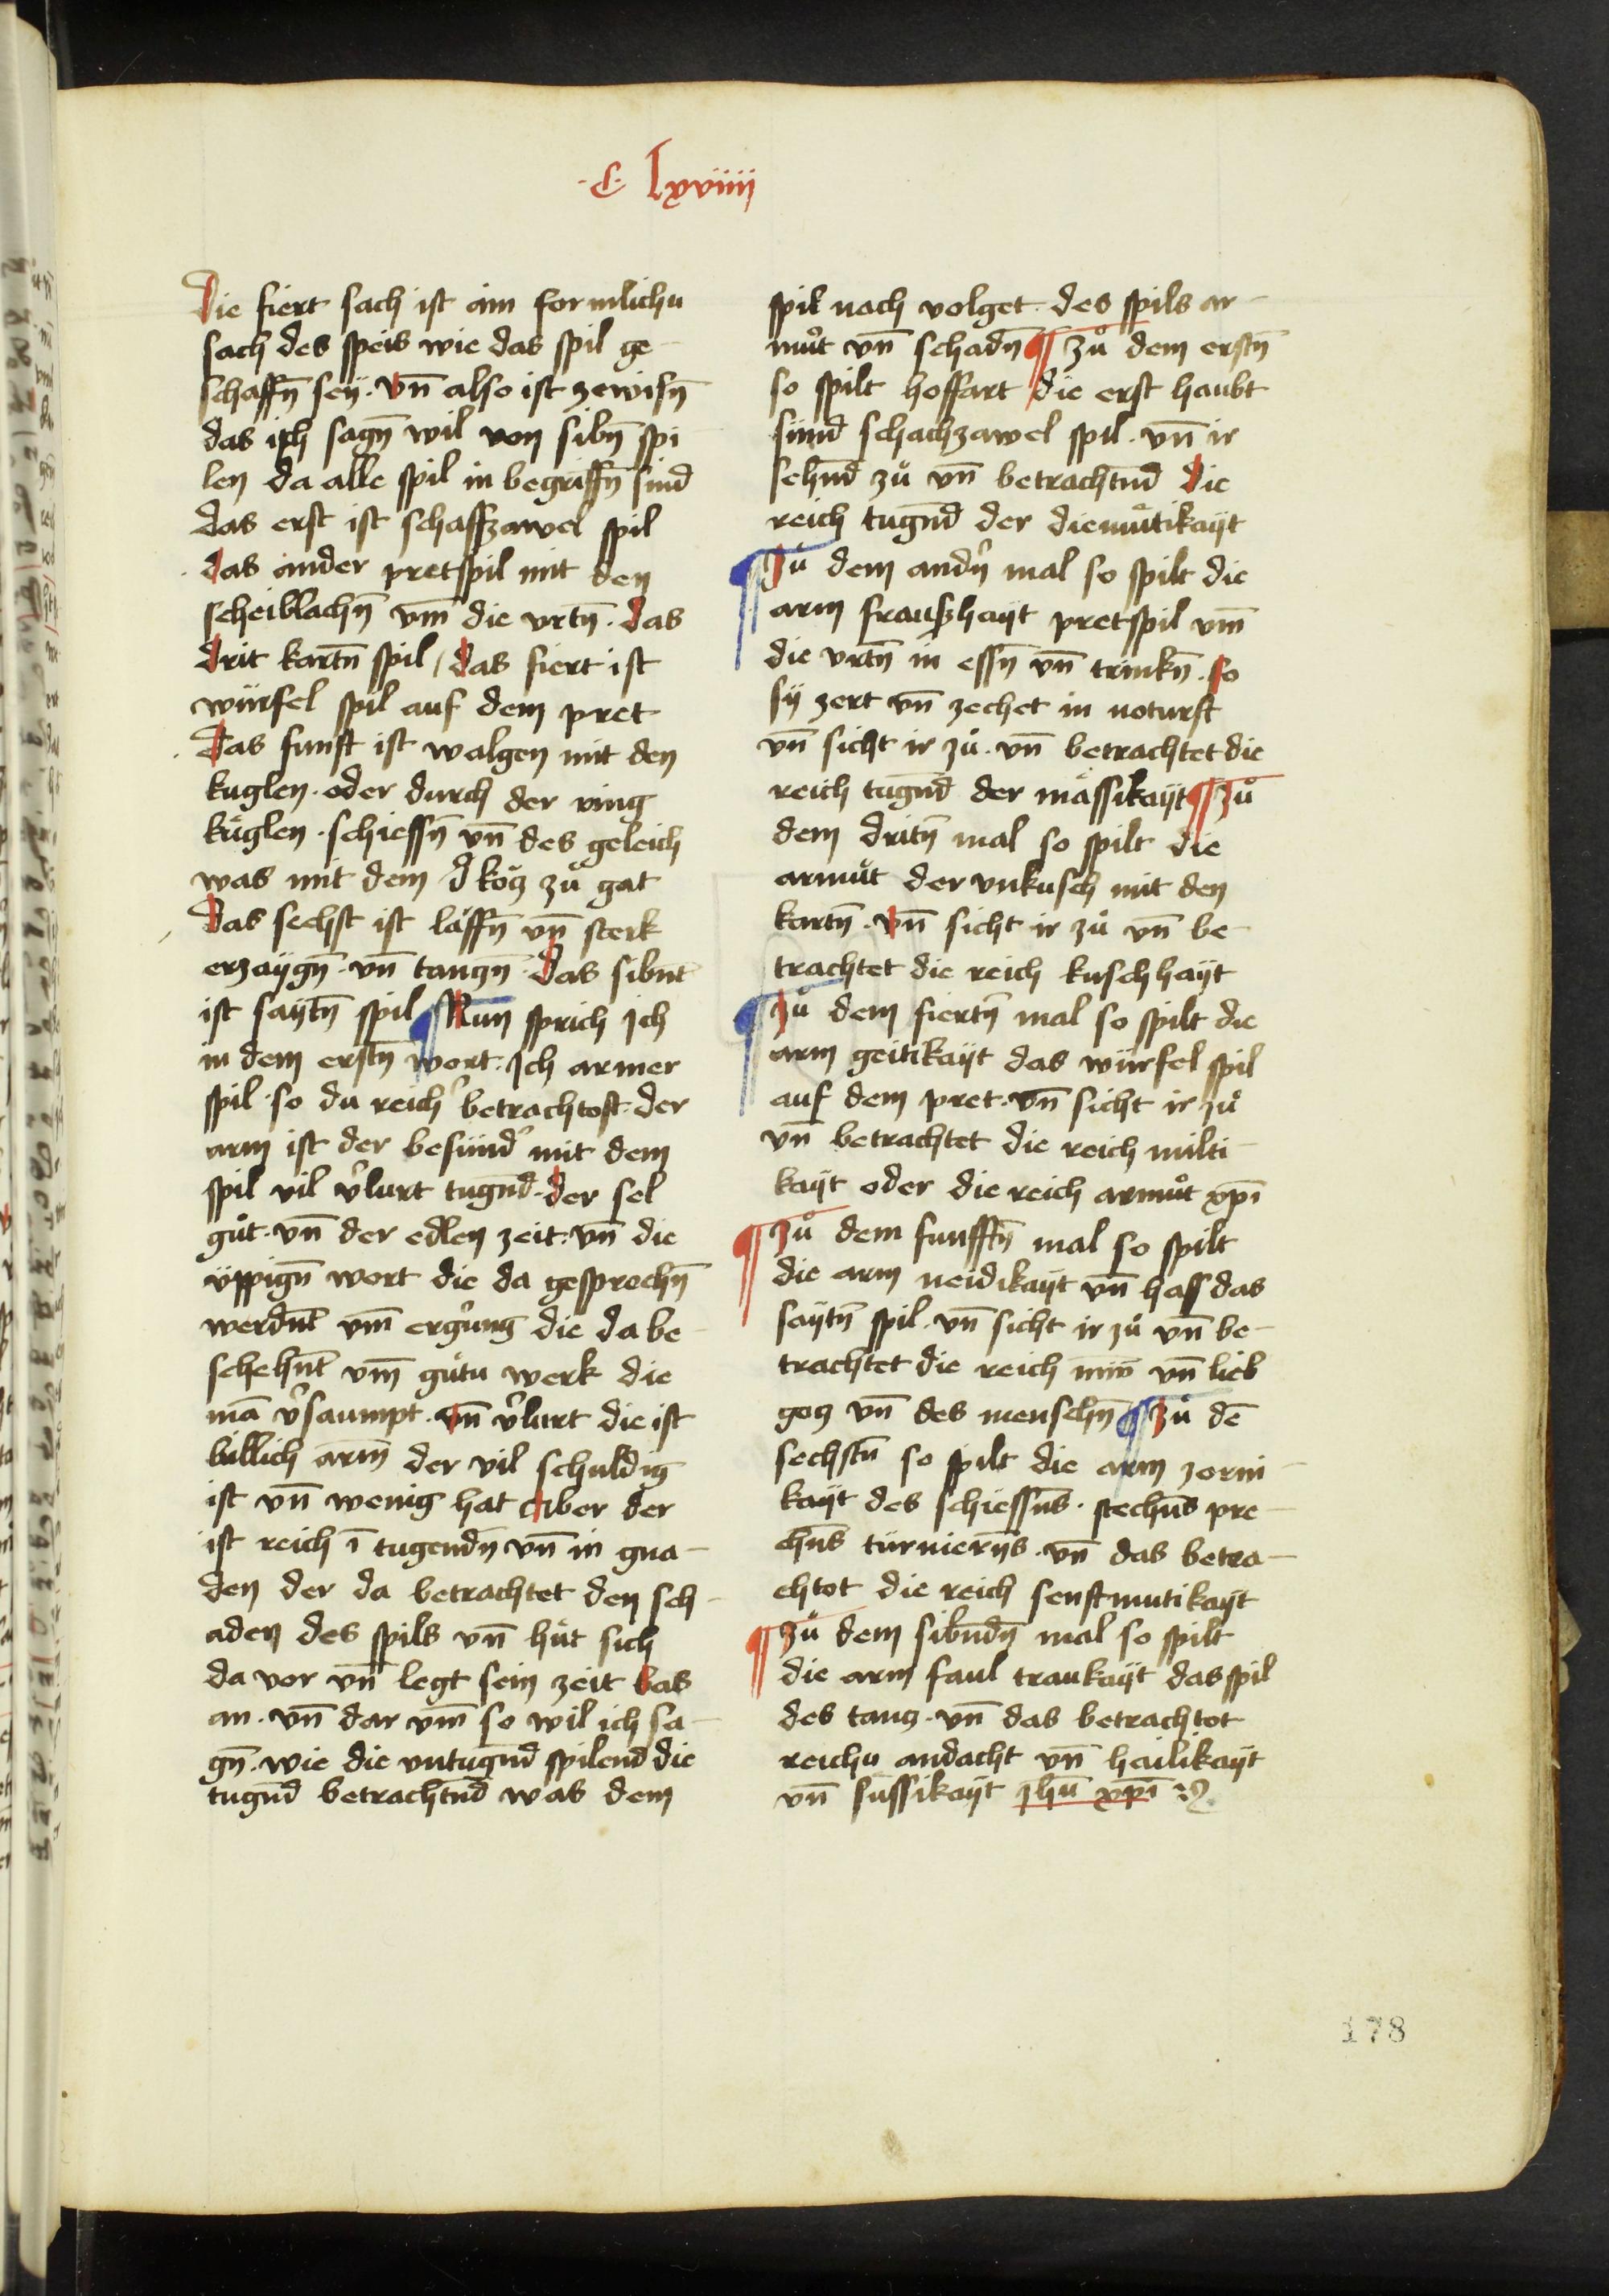 ·C· lxviiij
Die fiert sach ist ain formlichu
sach des speis wie das spil ge-
schaffn̄ seÿ · vn̄ also ist zewisn̄
das ich sagn̄ wil von sibn̄ spi
len da alle spil in begriffn̄ sind
das erst ist schaffzawel spil
· das ander pretspil mit den
scheiblachn̄ vm̄ die vrtn̄ · das
drit kartn̄ spil / das fiert ist
würfel spil auf dem pret
· Das funft ist walgen mit den
kuglen · oder durch der ring
kuͤglen · schiessn̄ vn̄ des geleich
was mit dem zuͦ gat
Das sechst ist laͤffn̄ vn̄ sterk
erzaÿgn̄ · vn̄ tanczn̄ · Das sibnt̄
ist saÿtn̄ spil ¶ Nun sprich Ich
in dem erstn̄ wort · Ich armer
spil · so du reich' betrachtost · der
arm ist der besünd' mit dem
spil vil v'lurt tugn̄d · der sel
guͦt · vn̄ der edlen zeit · vn̄ die
üppign̄ wort die da gesprochn̄
werdnt̄ vm̄ erg'ung die da be-
schehnt̄ vm̄ guͤtu werk die
mā v'saumpt · vn̄ v'lurt die ist
billich arm̄ der vil schuldig
ist vn̄ wenig hat Aber der
ist reich ī tugendn̄ vn̄ in gna-
den der da betrachtet den sch-
aden des spils vn̄ huͤt sich
da vor vn̄ legt sein zeit bas
an · vn̄ dar vm̄ so wil ich sa-
gn̄ · wie die vntugn̄d spilend die
tugn̄d betrachtn̄d was dem
spil nach volget · des spils ar-
muͦt vn̄ schadn̄ ¶ Zuͦ dem erstn̄
so spilt hoffart die erst haubt
sünd schachzawel spil · vn̄ ir
sehn̄d zuͦ vn̄ betrachtn̄d die
reich tugn̄d der diemuͤtikaÿt
¶ Zuͦ dem andn̄ mal so spilt die
arm frauszhaÿt pretspil vm̄
die vrtn̄ in essn̄ vn̄ trinkn̄ · so
sÿ zert vn̄ zechet in noturft
vn̄ sicht ir zuͦ · vn̄ betrachtet die
reich tugn̄d der maͤssikaÿt ¶ Zuͦ
dem dritn̄ mal so spilt die
armuͦt der vnkusch mit den
kartn̄ · vn̄ sicht ir zuͦ vn̄ be-
trachtet die reich kuschhaÿt
¶ Zuͦ dem fiertn̄ mal so spilt die
arm geitikaÿt das würfel spil
auf dem pret · vn̄ sicht ir zuͦ
vn̄ betrachtet die reich milti-
kaÿt oder die reich armuͦt xp̄i
¶ Zuͦ dem funfftn̄ mal so spilt
die arm neidikaÿt vn̄ hass das
saÿtn̄ spil · vn̄ sicht ir zuͦ vn̄ be-
trachtet die reich min̄ vn̄ lieb
gocz vn̄ des menschn̄ ¶ Zuͦ dē
sechstn̄ so spilt die arm zorni-
kaÿt des schiessn̄s · stechn̄s pre-
chn̄s türniern̄s · vn̄ das betra-
chtot die reich senftmutikaÿt
¶ Zuͦ dem sibndn̄ mal so spilt
die arm faul traukaÿt das spil
des tancz · vn̄ das betrachtot
reichu andacht vn̄ hailikaÿt
vn̄ sussikaÿt Jhū xp̄i
178